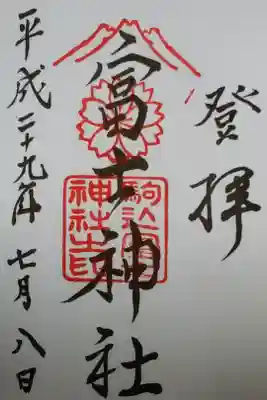 登拝
冨士神社
平成二十九年 七月 八日
駒込
神社之印